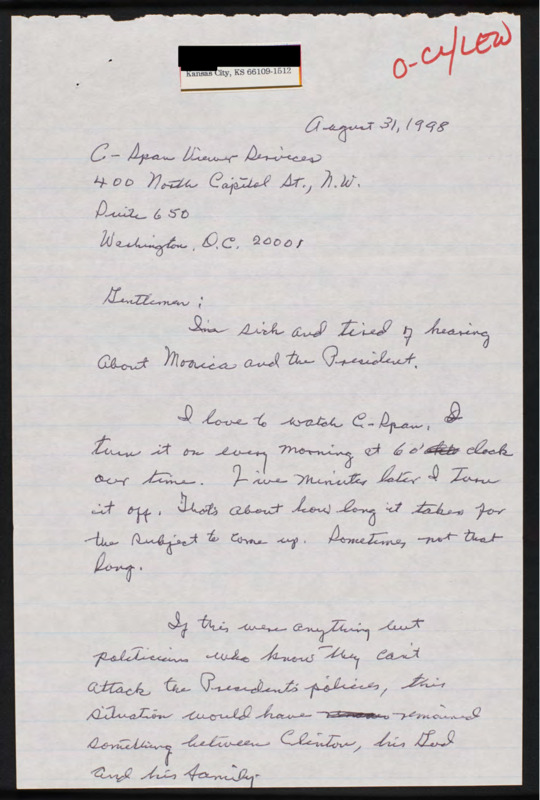 Kansas City, KS 66109-1512
O-CL/LEW
August 31, 1998
C-Span Viewer Services
400 North Capitol St., N.W.
Suite 650
Washington, D.C. 20001
Gentlemen:
I'm sick and tired of hearing
about Monica and the President.
I love to watch C-Span. I
turn it on every morning at 6 o'clock
our time. Five minutes later I turn
it off. That's about how long it takes for
the subject to come up. Sometimes not that
long.
If this were anything but
politicians who know they can't
attack the President's policies, this
situation would have remained
something between Clinton, his God
and his family.